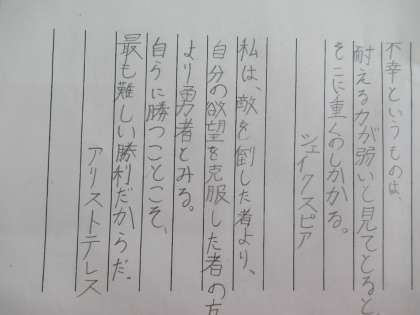 不幸というものは、
耐える力が弱いと見てとると、
そこに重くのしかかる。
シェイクスピア
私は、敵を倒した者より、
自分の欲望を克服した者の方
より勇者とみる。
自らに勝つことこそ、
最も難しい勝利だからだ。
アリストテレス